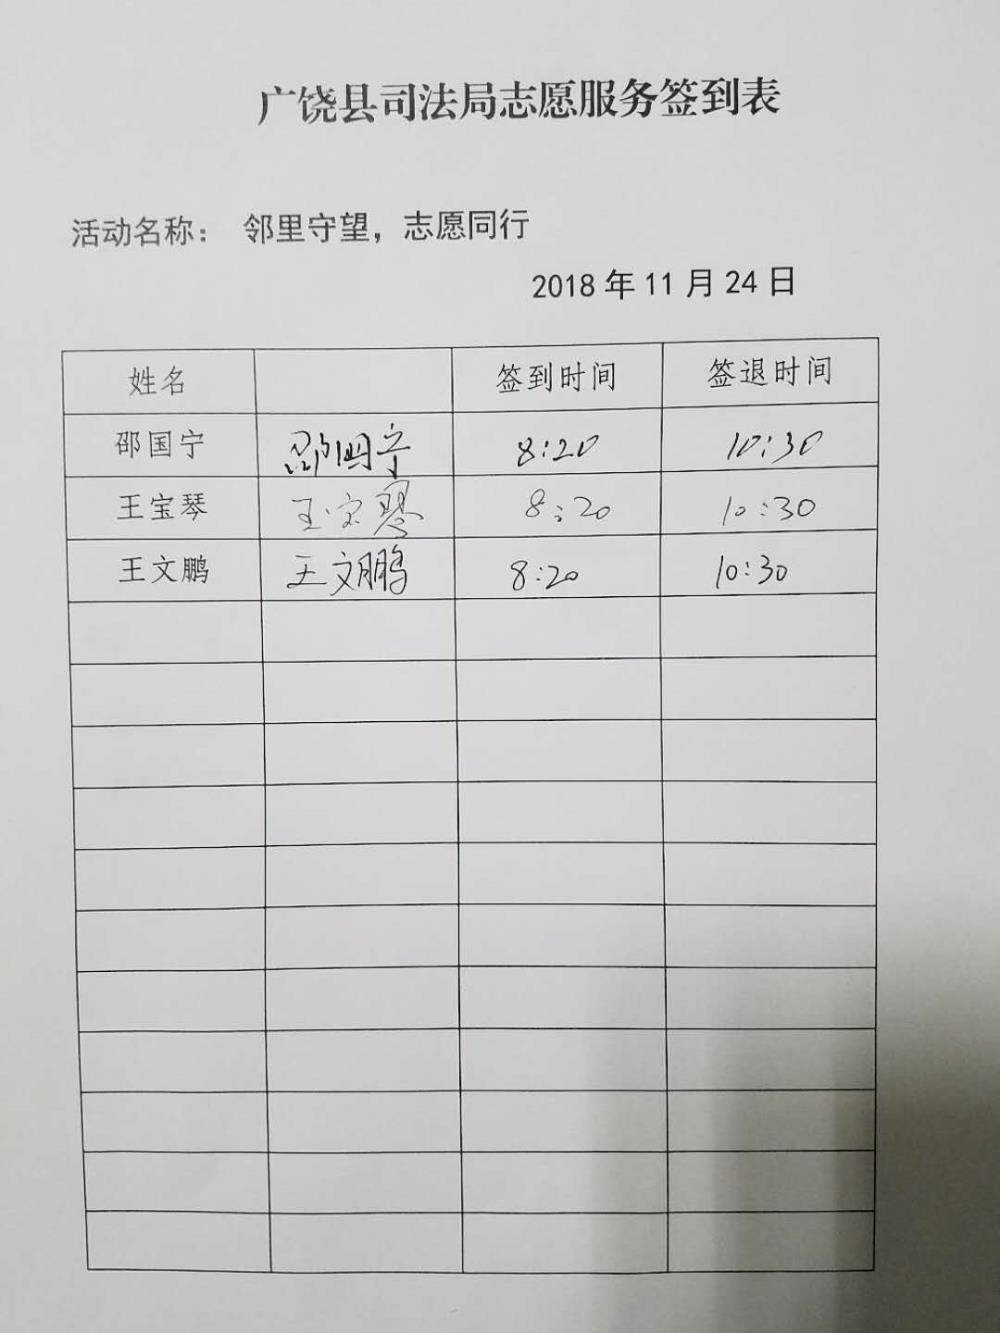 广饶县司法局志愿服务签到表
活动名称： 邻里守望，志愿同行
2018年11月24日
姓名 签到时间 签退时间
邵国宁 邵国宁 8:20 10:30
王宝琴 王宝琴 8:20 10:30
王文鹏 王文鹏 8:20 10:30